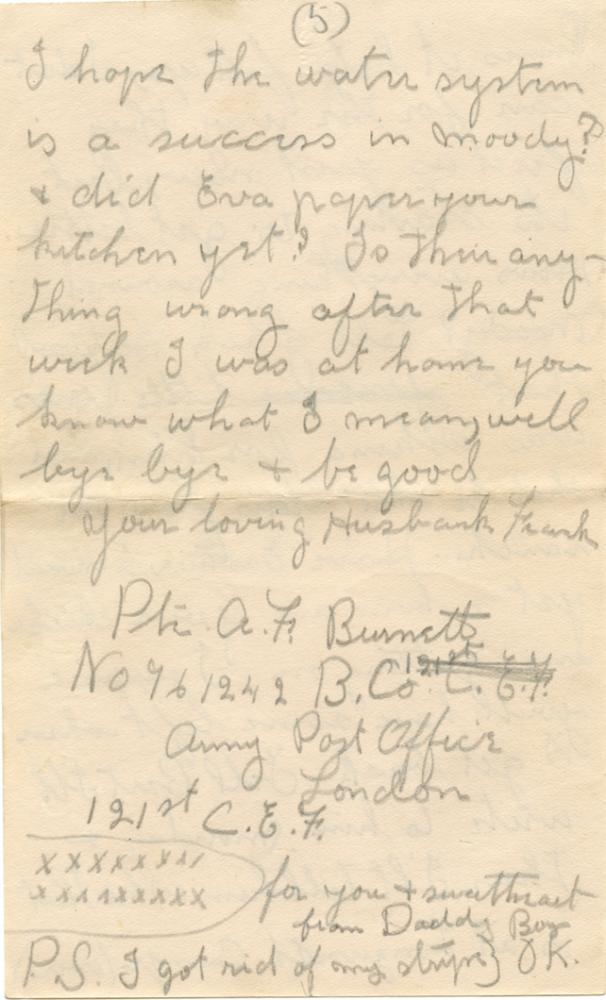 (5)
I hope the water system
is a success in Moody?
& did Eva paper your
kitchen yet? Is their any-
thing wrong after that
week I was at home you
know what I mean, well
bye bye & be good
your loving Husbank Frank
Pte A. F. Burnett
No 761242 B. Co. 121st C. E. F.
Army Post Office
London
121st C. E. F.
x x x x x x x x
x x x x x x x x x
for you & sweetheart
from Daddy Boy
P.S. I got rid of my stripe} O.K.